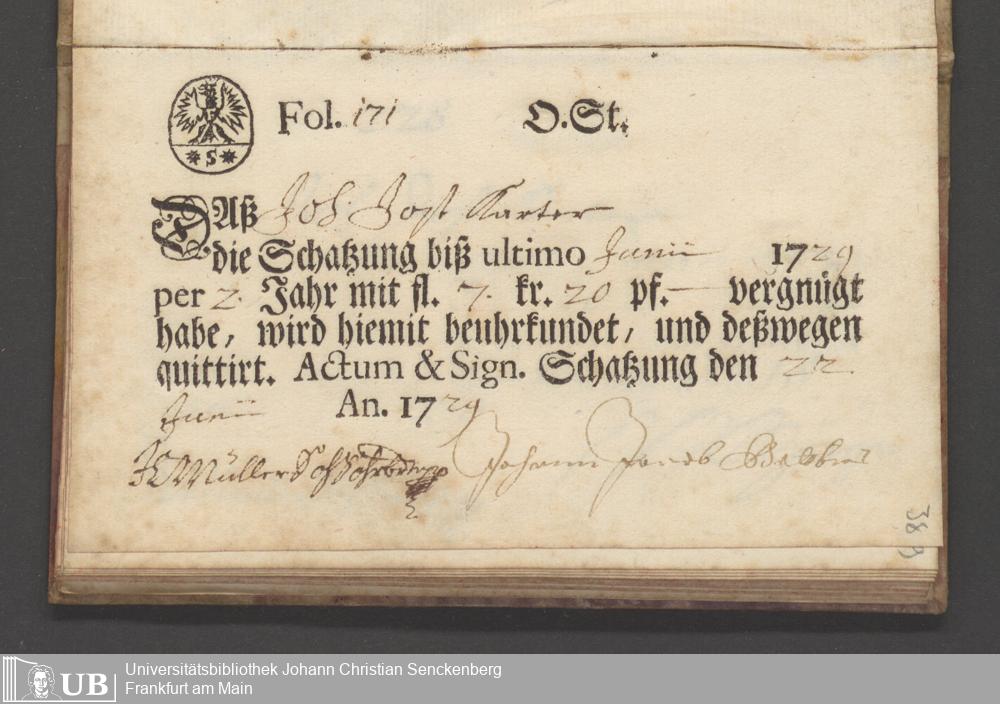 Fol. 171 O. St.
* S *
Daß Joh. Jost Karter
die Schatzung biß ultimo Junii 1729
per 2. Jahr mit fl. 7. kr. 20 pf. — vergnügt
habe, wird hiemit beuhrkundet, und deßwegen
quittirt. Actum & Sign. Schatzung den 22.
Junii An. 1729
Müller Johann Jacob
38 9
UB
Universitätsbibliothek Johann Christian Senckenberg
Frankfurt am Main